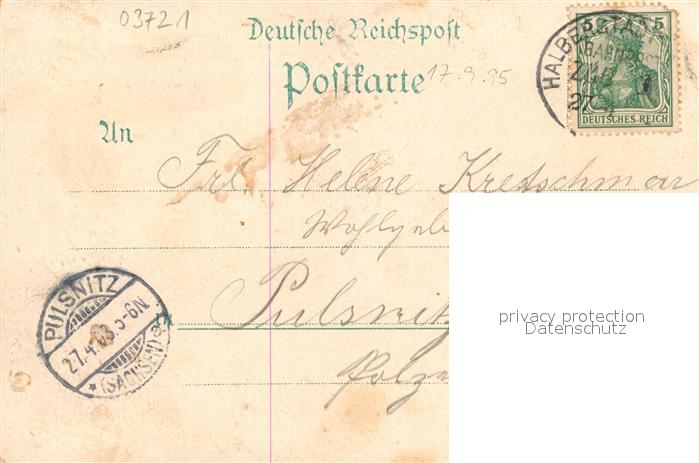 03721
Deutsche Reichspost
Postkarte 17.9.95
5 5
HALBERSTADT
27
DEUTSCHES REICH
An
Frl. Helene Kretschmar
Wohlgeb
PULSNITZ
27.4.03.5-6N
*(SACHSEN)a
Pulsnitz
privacy protection
Datenschutz